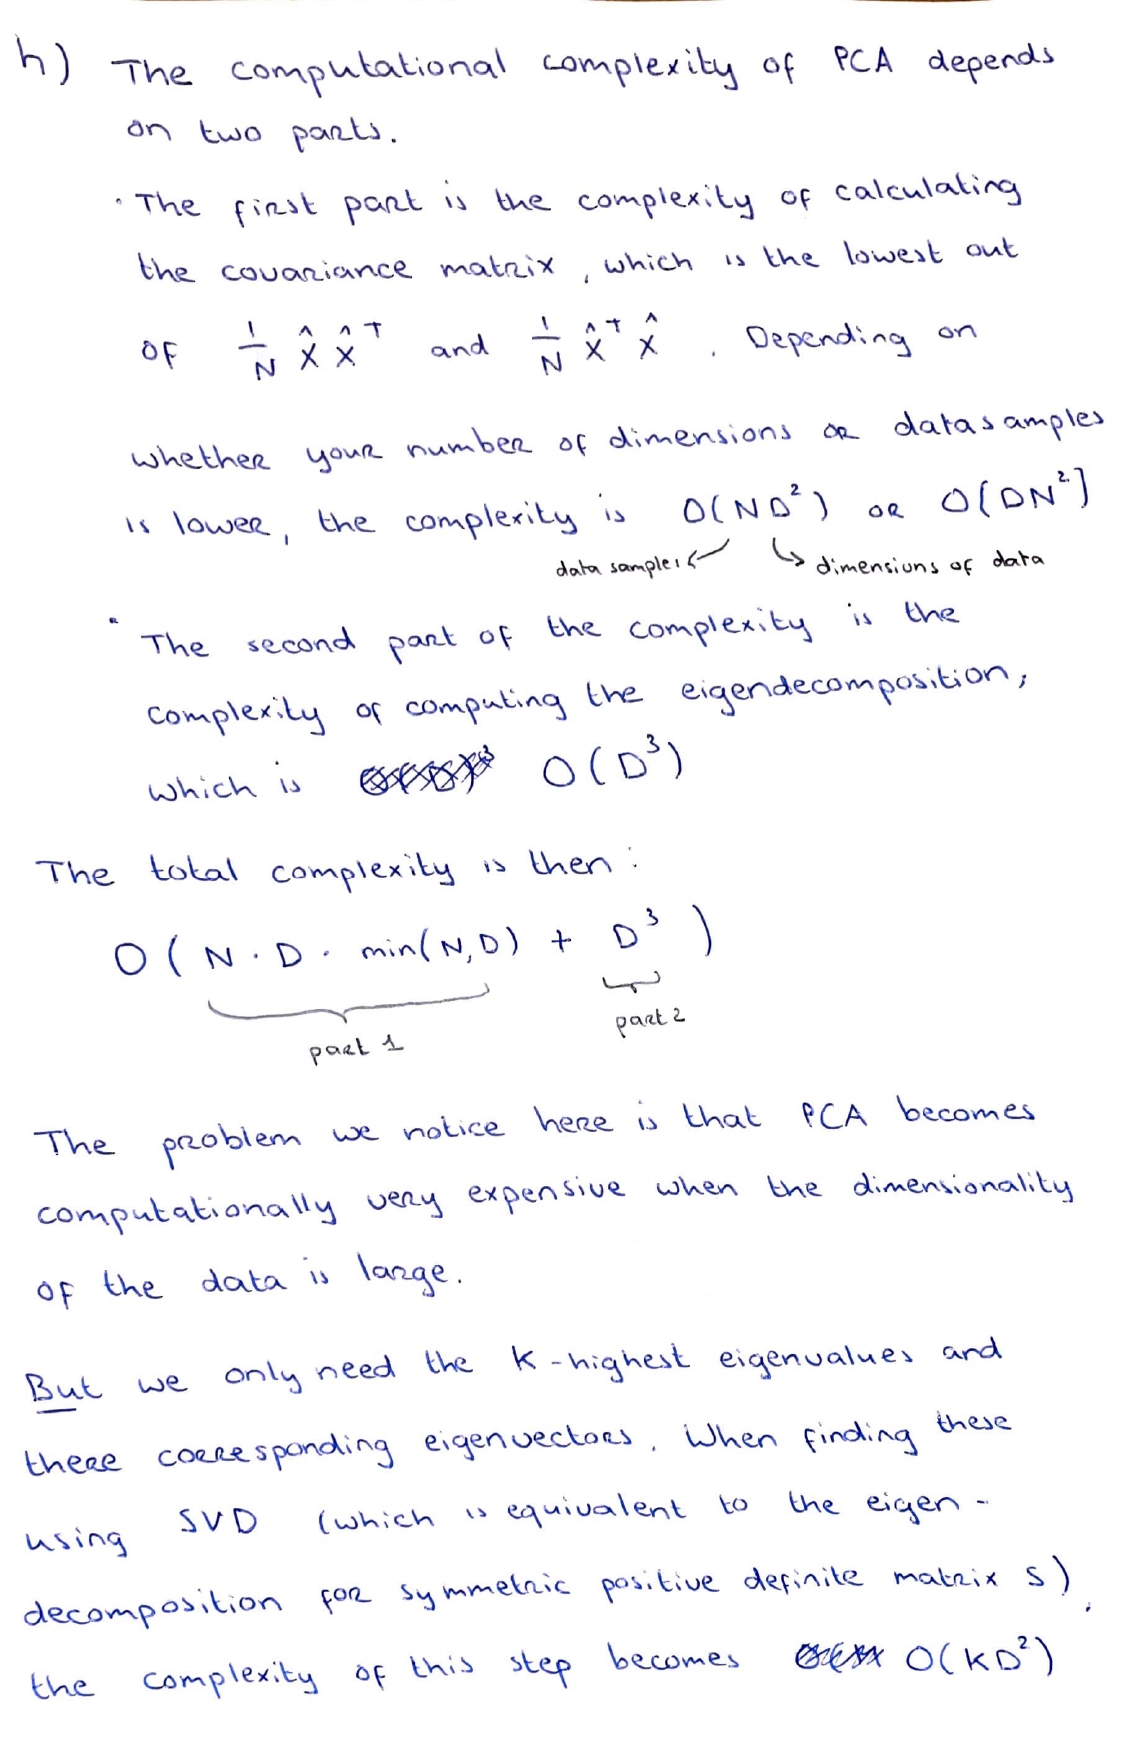 h) The computational complexity of PCA depends
on two parts.
· The first part is the complexity of calculating
the covariance matrix, which is the lowest out
of 1/N X̂ X̂ᵀ and 1/N X̂ᵀ X̂. Depending on
whether your number of dimensions or datasamples
is lower, the complexity is O(ND²) or O(DN²)
data samples ↙ ↳ dimensions of data
· The second part of the complexity is the
complexity of computing the eigendecomposition,
which is O(D³)
The total complexity is then:
O(N·D·min(N,D) + D³)
part 2
part 1
The problem we notice here is that PCA becomes
computationally very expensive when the dimensionality
of the data is large.
But we only need the K-highest eigenvalues and
there corresponding eigenvectors. When finding these
using SVD (which is equivalent to the eigen-
decomposition for symmetric positive definite matrix S),
the complexity of this step becomes O(KD²)